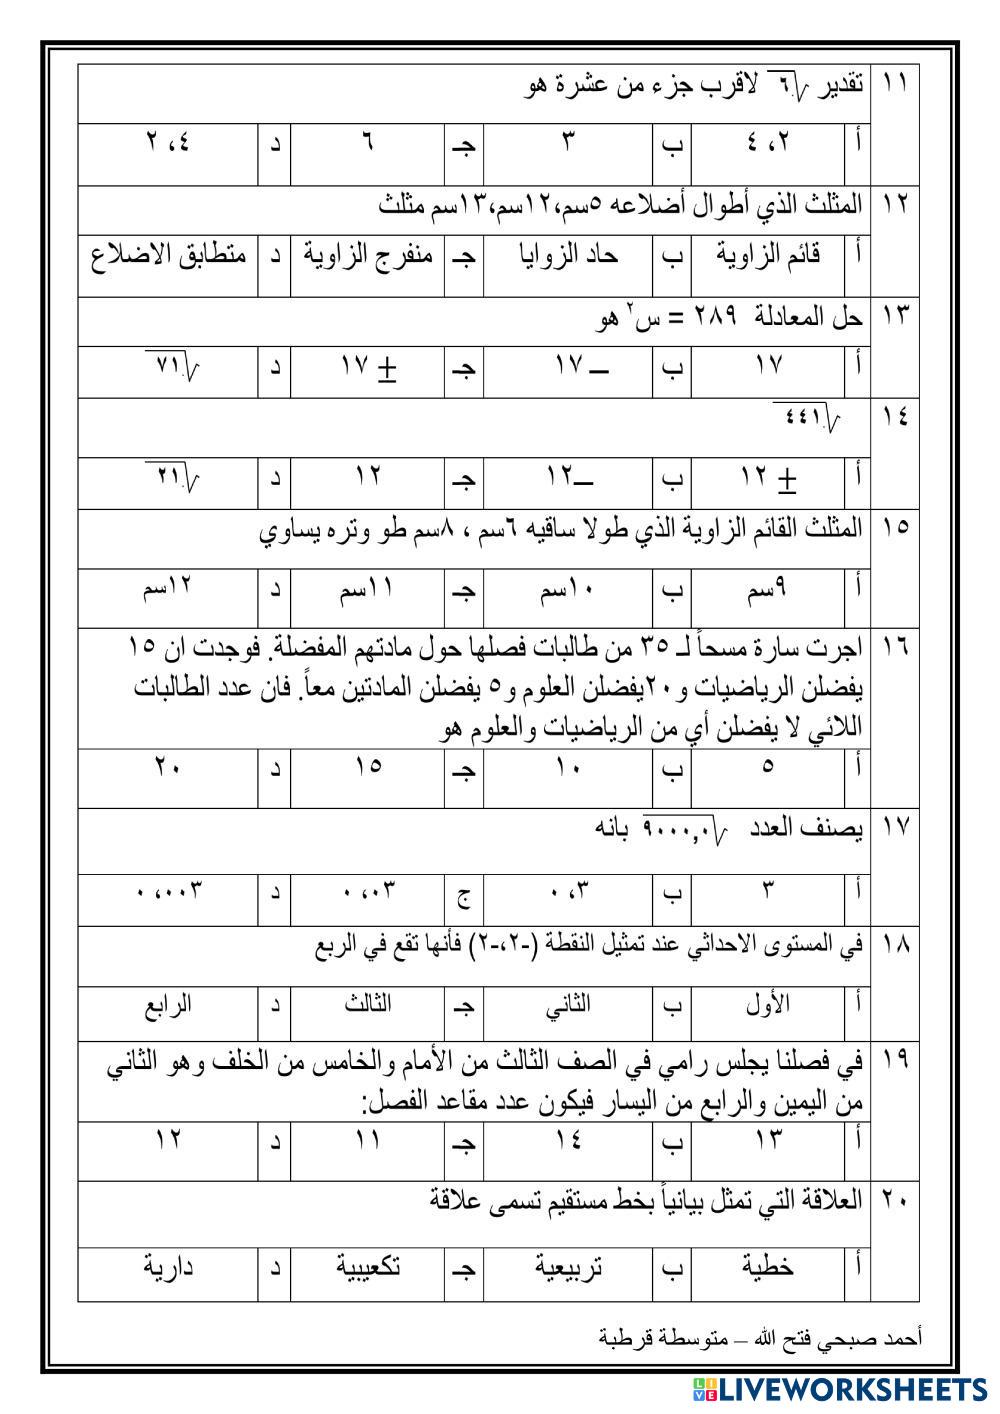 ١١ تقدير √٦ لاقرب جزء من عشرة هو
أ ٤ ،٢ ب ٣ جـ ٦ د ٢ ،٤
١٢ المثلث الذي أطوال أضلاعه ٥سم،١٢سم،١٣سم مثلث
أ قائم الزاوية ب حاد الزوايا جـ منفرج الزاوية د متطابق الاضلاع
١٣ حل المعادلة ٢٨٩ = س٢ هو
أ ١٧ ب – ١٧ جـ ± ١٧ د √٧١
١٤ √٤٤١
أ ± ١٢ ب –١٢ جـ ١٢ د √٢١
١٥ المثلث القائم الزاوية الذي طولا ساقيه ٦سم ، ٨سم طو وتره يساوي
أ ٩سم ب ١٠سم جـ ١١سم د ١٢سم
١٦ اجرت سارة مسحاً لـ ٣٥ من طالبات فصلها حول مادتهم المفضلة. فوجدت ان ١٥
يفضلن الرياضيات و٢٠يفضلن العلوم و٥ يفضلن المادتين معاً. فان عدد الطالبات
اللائي لا يفضلن أي من الرياضيات والعلوم هو
أ ٥ ب ١٠ جـ ١٥ د ٢٠
١٧ يصنف العدد √٩٠٠٠,٠ بانه
أ ٣ ب ٠ ،٣ ج ٠ ،٠٣ د ٠ ،٠٠٣
١٨ في المستوى الاحداثي عند تمثيل النقطة (-٢،-٢) فأنها تقع في الربع
أ الأول ب الثاني جـ الثالث د الرابع
١٩ في فصلنا يجلس رامي في الصف الثالث من الأمام والخامس من الخلف وهو الثاني
من اليمين والرابع من اليسار فيكون عدد مقاعد الفصل:
أ ١٣ ب ١٤ جـ ١١ د ١٢
٢٠ العلاقة التي تمثل بيانياً بخط مستقيم تسمى علاقة
أ خطية ب تربيعية جـ تكعيبية د دارية
أحمد صبحي فتح الله – متوسطة قرطبة
LIVE LIVEWORKSHEETS